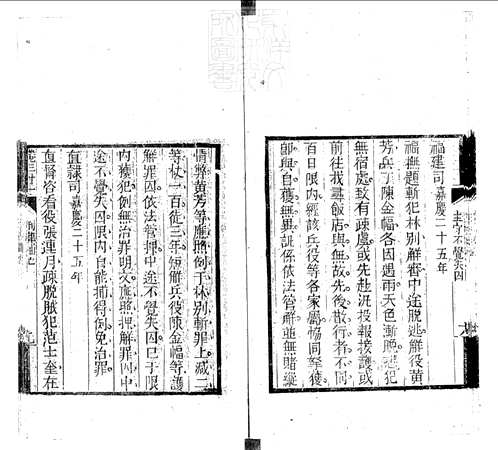 福建司 嘉慶二十五年
福撫題斬犯林別解審中途脫逃解役黃
芳兵丁陳金幅各因遇雨天色漸晚患犯
無宿處致有疎虞或先赴汛投報接護或
前往我尋飯店與無故先後散行者不同
百日限內經該兵役等各家屬暢同拏獲
即與自獲無異訊係依法管解並無賄縱
情弊黃芳等應將例于林別斬罪上減二
等杖一百徒三年短解兵役陳金幅等護
解罪囚依法管押中途不覺失囚已于限
內獲犯例無治罪明文應照押解罪囚中
途不覺失囚限內自能捕得例免治罪
直隸司 嘉慶二十五年
直督咨看役張連月疎脫賊犯范士奎在
主守不覺失囚
卷三廿一